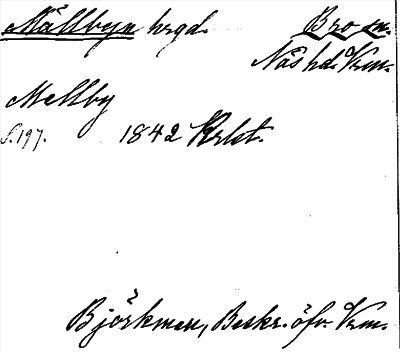 Mällbyn hrgd. Bro sn.
Näs hd. Vrm.
Mellby
s. 197. 1842 Krlst.
Björkman, Beskr. öfv. Vrm.